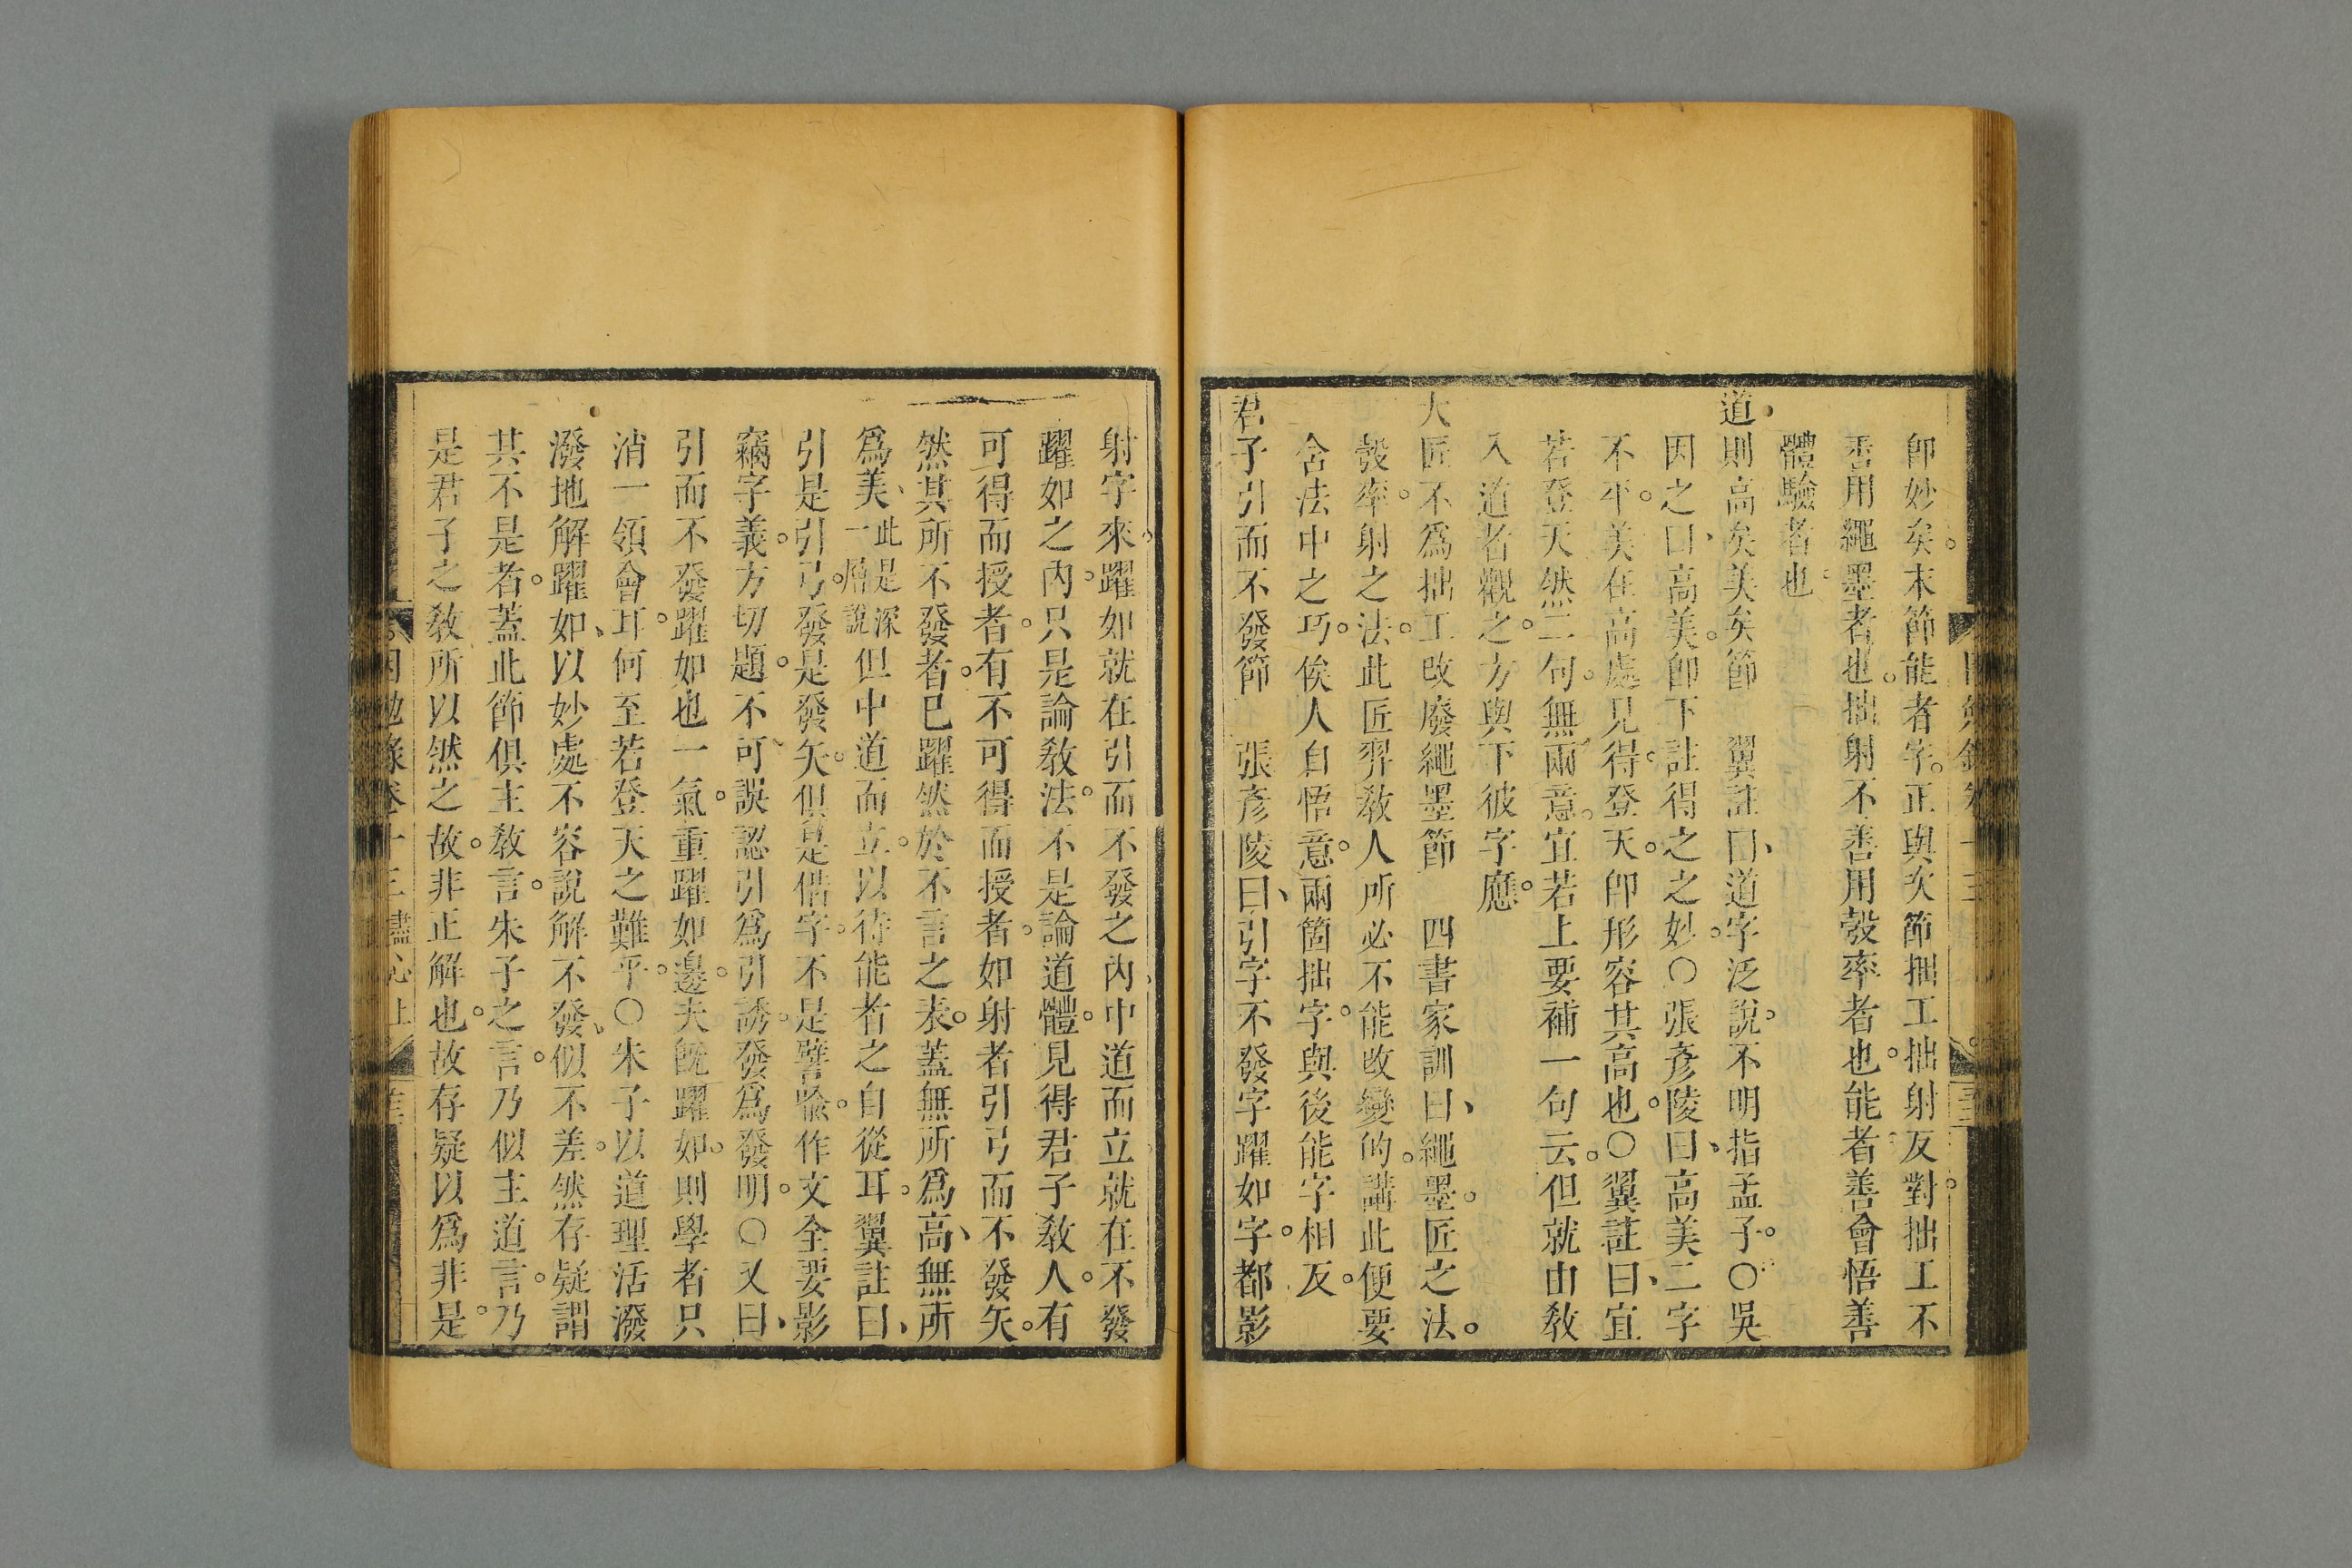 卽妙矣。末節能者字。正與次節拙工拙射反對。拙工不
善用繩墨者也。拙射不善用彀率者也。能者善會悟善
體驗者也。
道則高矣美矣節　翼註曰、道字泛說。不明指孟子。○吳
因之曰、高美。卽下註得之之妙。○張彥陵曰、高美二字
不平。美在高處見得。登天。卽形容其高也。○翼註曰、宜
若登天然二句。無兩意。宜若上要補一句云。但就由敎
入道者觀之。方與下彼字應。
大匠不爲拙工改廢繩墨節　四書家訓曰、繩墨。匠之法。
彀率。射之法。此匠羿敎人所必不能改變的。講此便要
含法中之巧。俟人自悟意。兩箇拙字。與後能字相反。
君子引而不發節　張彥陵曰、引字不發字躍如字。都影
射字來。躍如就在引而不發之內、中道而立。就在不發
躍如之內。只是論敎法。不是論道體。見得君子敎人。有
可得而授者。有不可得而授者。如射者引弓而不發矢。
然其所不發者。已躍然於不言之表。蓋無所爲高、無所
爲美、此是深一層說但中道而立。以待能者之自從耳。翼註曰、
引是引弓。發是發矢。俱是借字。不是譬喻。作文全要影
竊字義。方切題。不可誤認引爲引誘。發爲發明。○又曰、
引而不發。躍如也一氣。重躍如邊。夫旣躍如。則學者只
消一領會耳。何至若登天之難乎。○朱子以道理活潑
潑地解躍如、以妙處不容說解不發、似不差。然存疑謂
其不是者。蓋此節俱主敎言。朱子之言。乃似主道言。乃
是君子之敎所以然之故。非正解也。故存疑以爲非是。
困勉錄卷十三盡心上